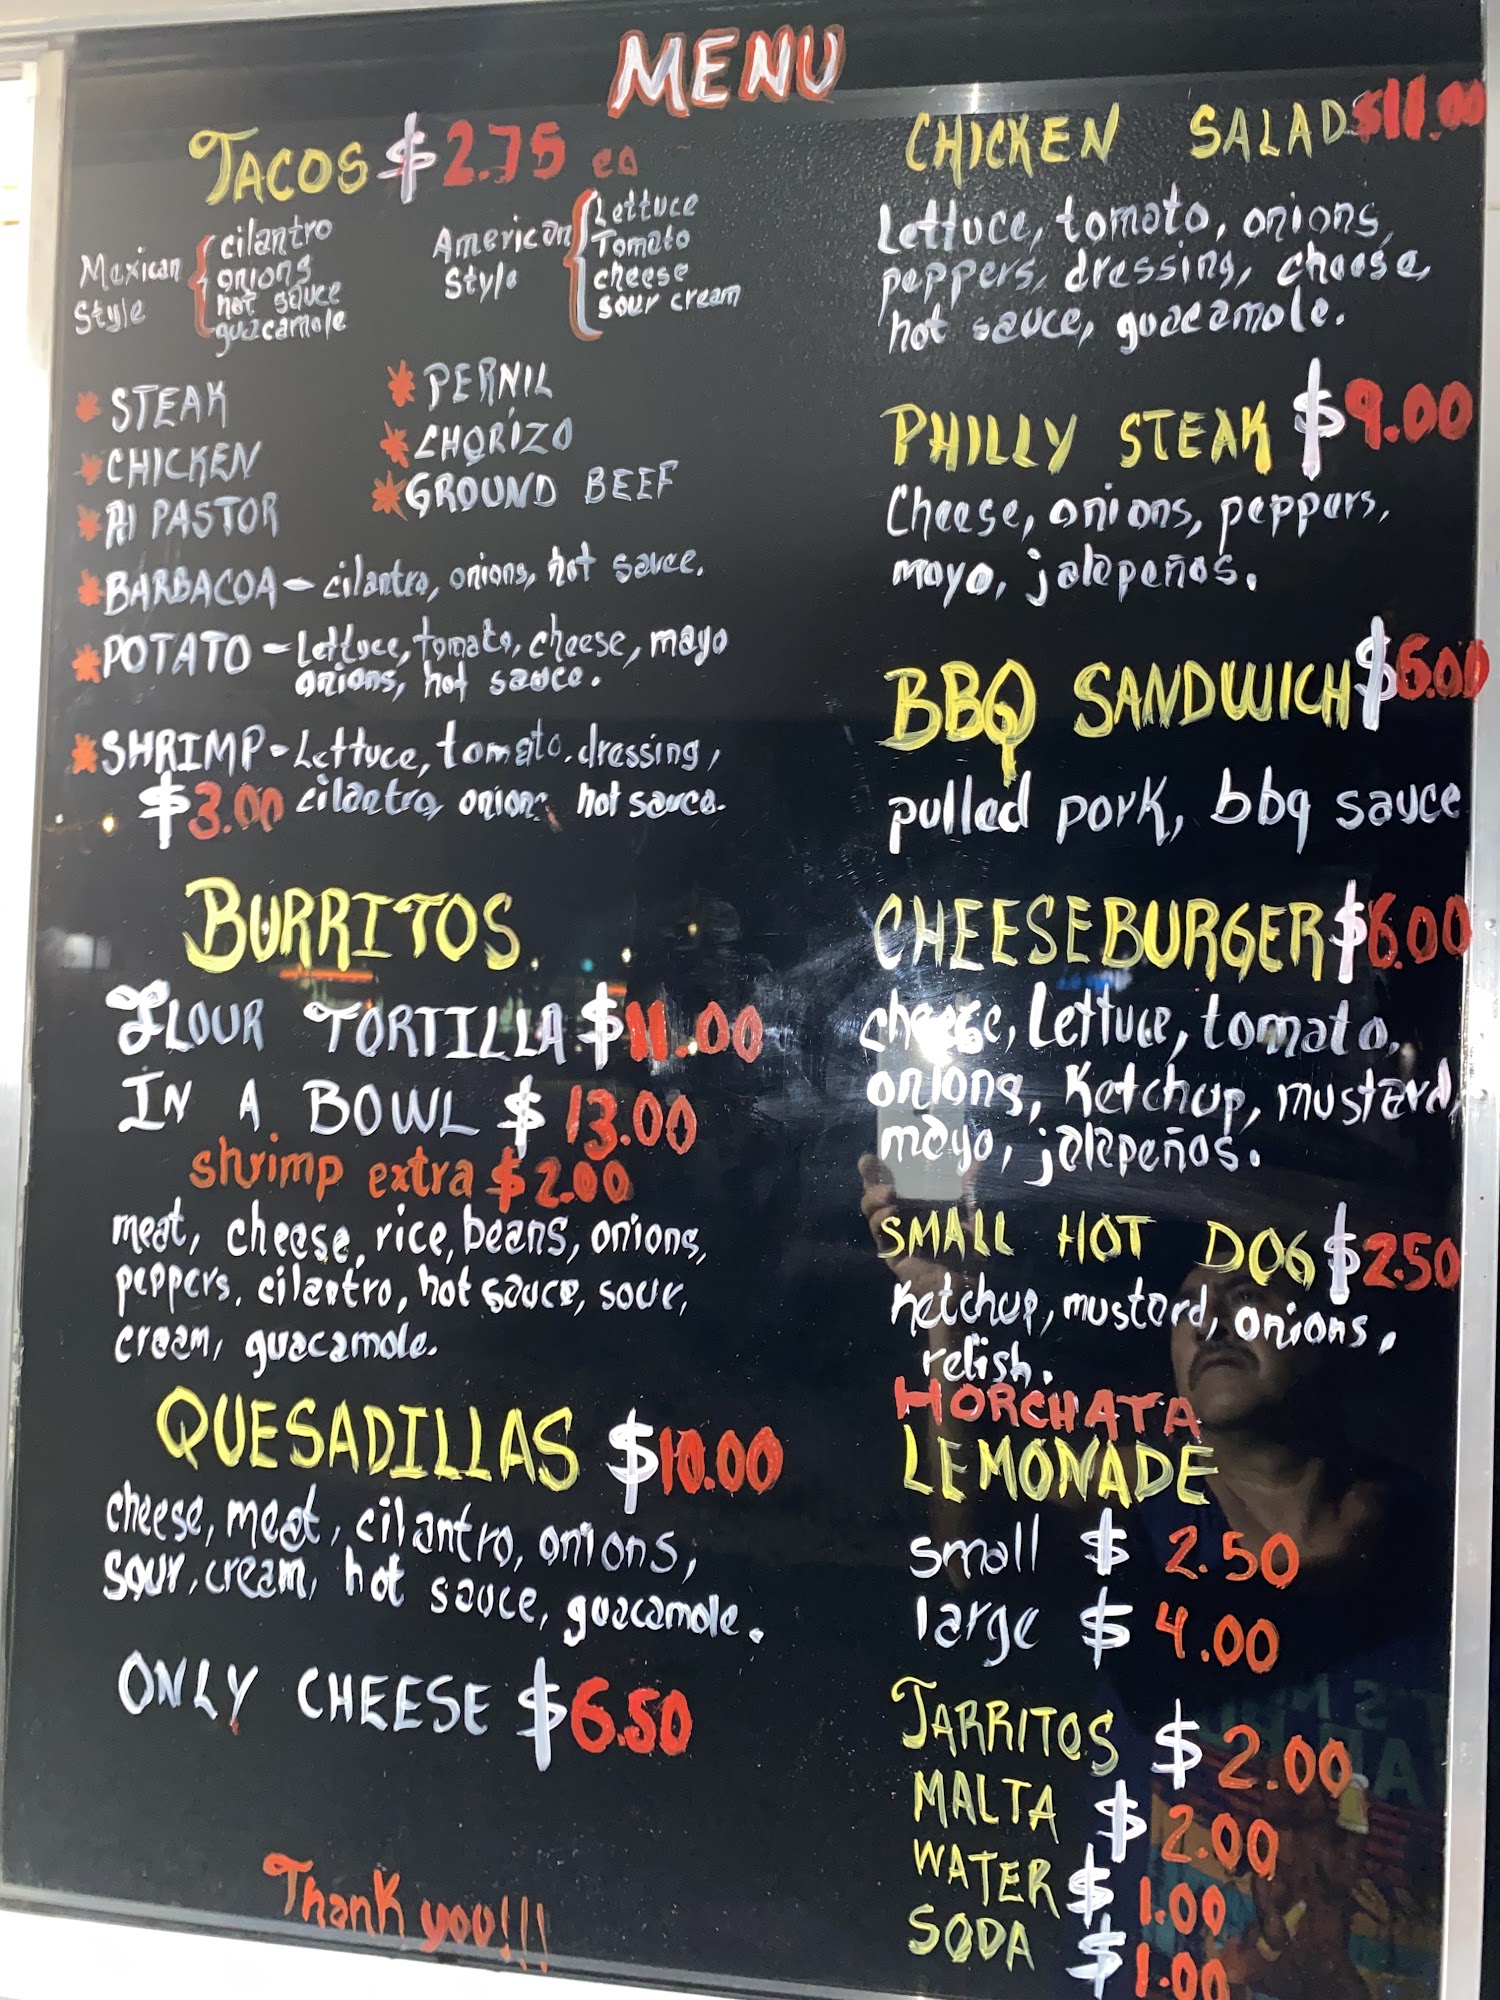 MENU
TACOS $2.75 ea
Mexican Style
cilantro
onions
hot sauce
guacamole
American Style
Lettuce
Tomato
cheese
sour cream
STEAK
CHICKEN
Al PASTOR
PERNIL
CHORIZO
GROUND BEEF
BARBACOA - cilantro, onions, hot sauce.
POTATO - Lettuce, tomato, cheese, mayo
onions, hot sauce.
SHRIMP - Lettuce, tomato. dressing,
$3.00 cilantro, onions, hot sauce.
BURRITOS
FLOUR TORTILLA $11.00
IN A BOWL $13.00
shrimp extra $2.00
meat, cheese, rice, beans, onions,
peppers, cilantro, hot sauce, sour,
cream, guacamole.
QUESADILLAS $10.00
cheese, meat, cilantro, onions,
sour, cream, hot sauce, guacamole.
ONLY CHEESE $6.50
Thank you!!!
CHICKEN SALAD $11.00
Lettuce, tomato, onions,
peppers, dressing, cheese,
hot sauce, guacamole.
PHILLY STEAK $9.00
Cheese, onions, peppers,
mayo, jalapeños.
BBQ SANDWICH $6.00
pulled pork, bbq sauce
CHEESEBURGER $6.00
cheese, Lettuce, tomato,
onions, Ketchup, mustard,
mayo, jalapeños.
SMALL HOT DOG $2.50
Ketchup, mustard, onions,
relish.
HORCHATA
LEMONADE
small $2.50
large $4.00
JARRITOS $2.00
MALTA $2.00
WATER $1.00
SODA $1.00